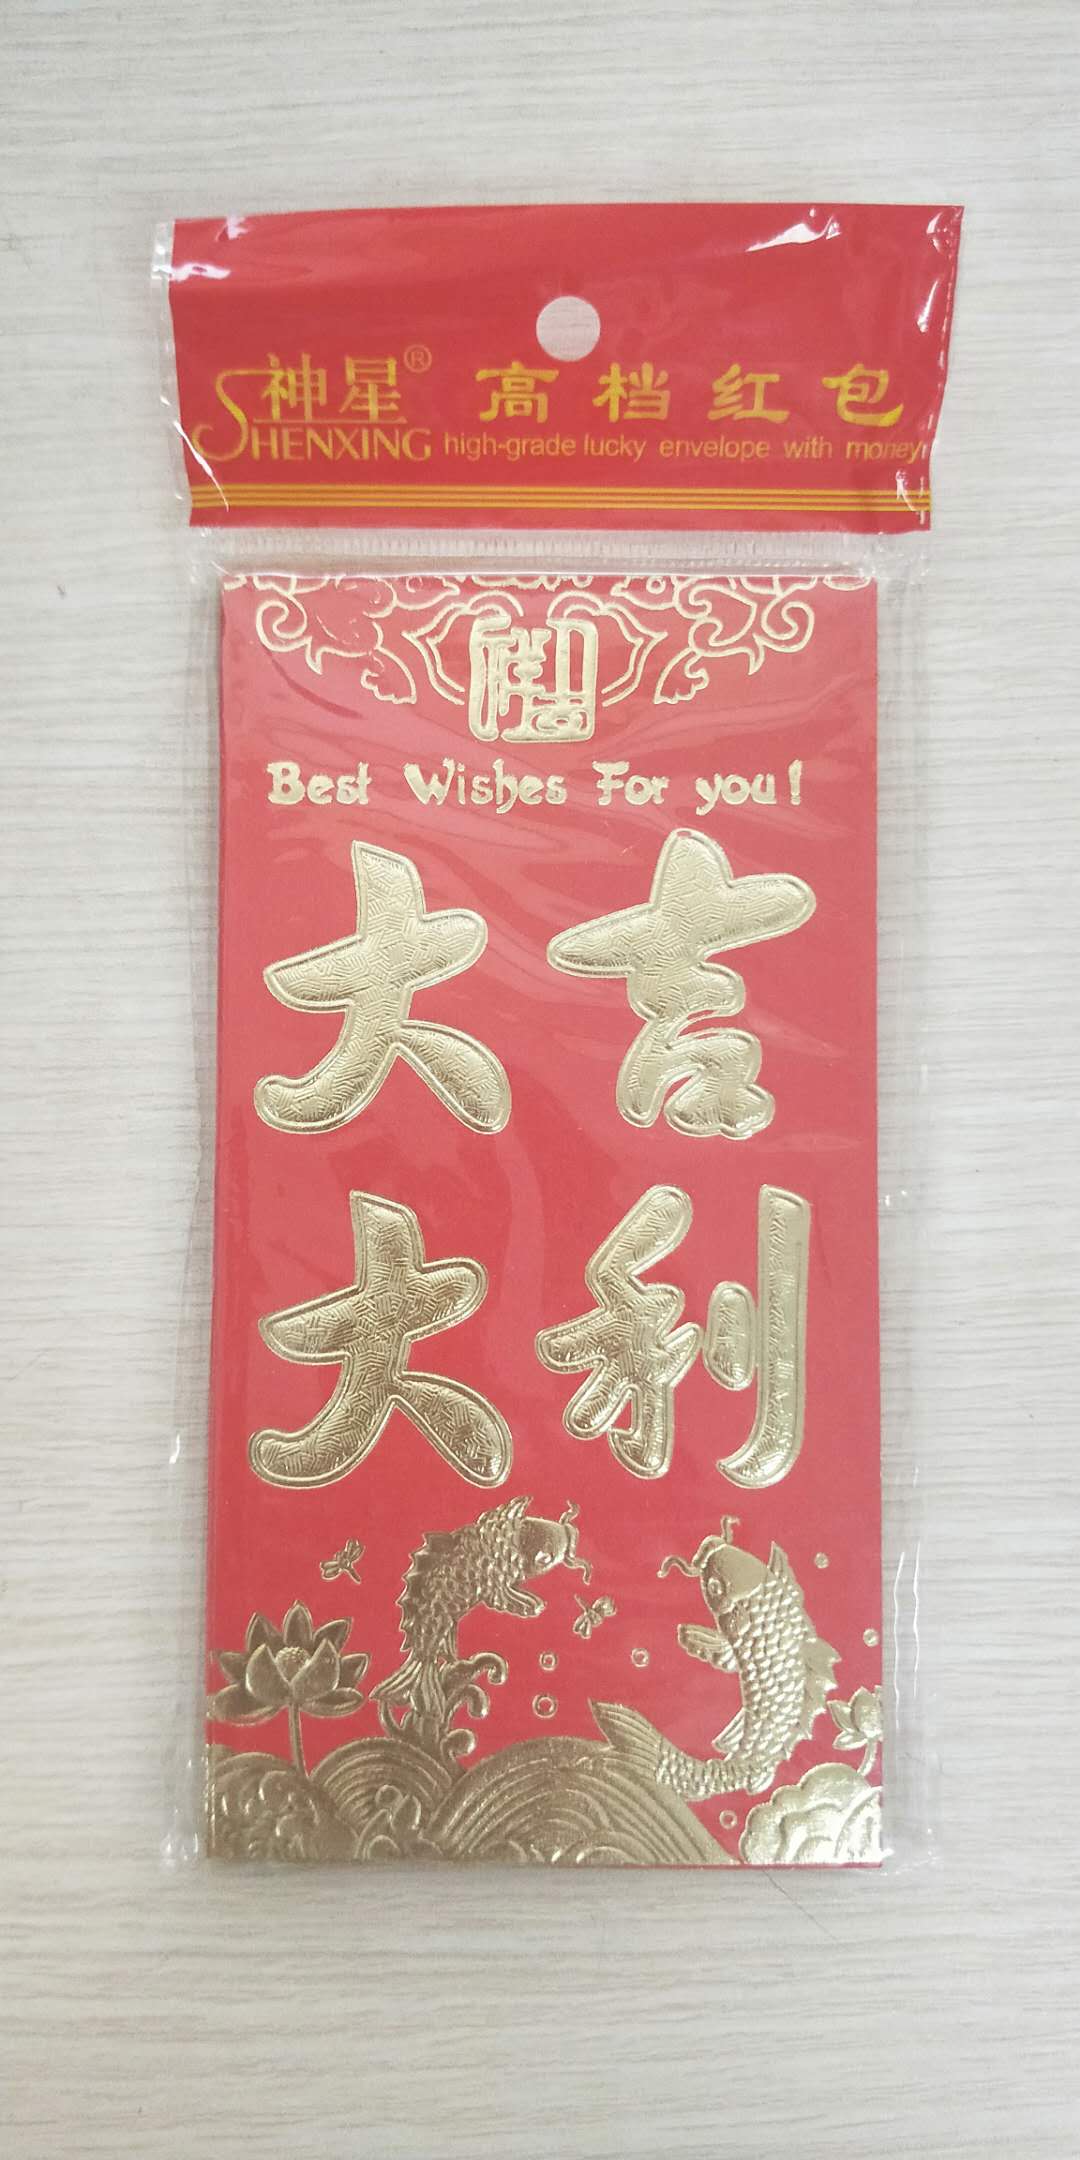 神星® 高档红包
SHENXING high-grade lucky envelope with money
Best Wishes For you!
大吉
大利